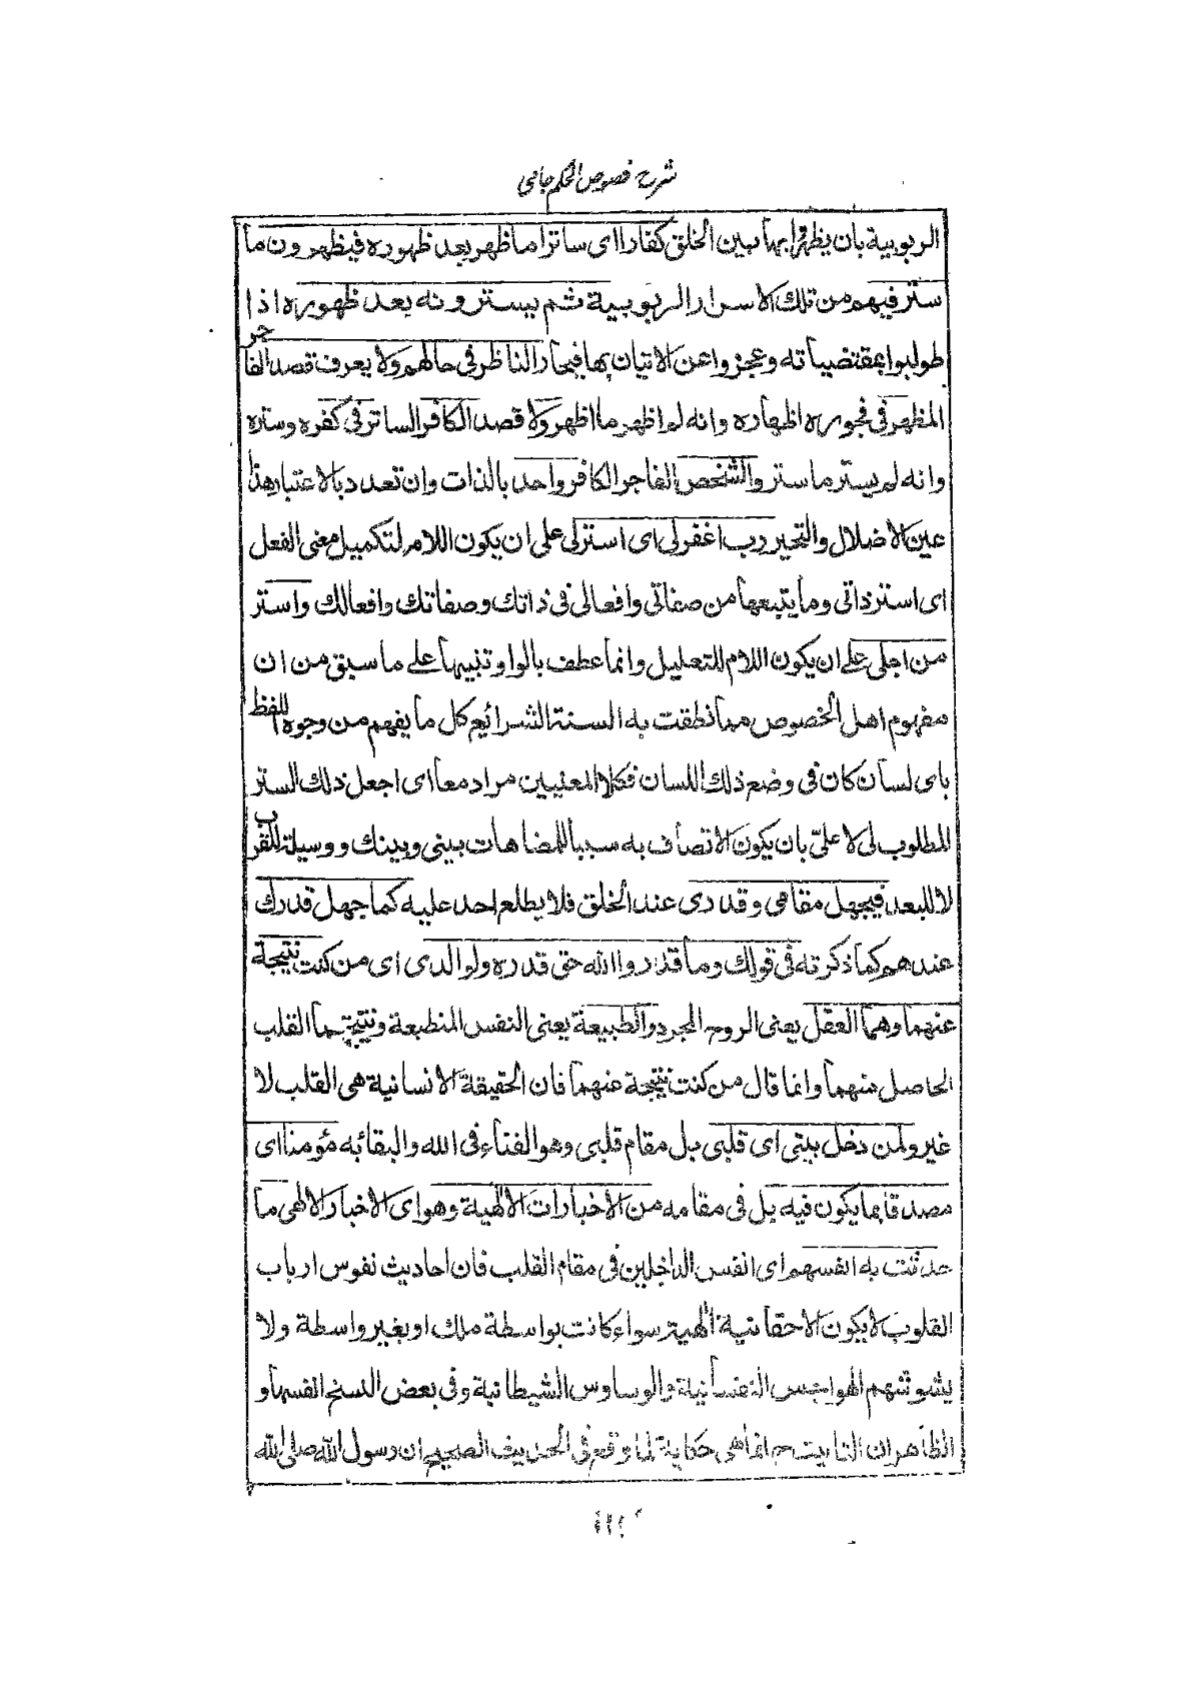 شرح فصوص الحكم جامى
الربوبية بان يظهروا بها بين الخلق كفارا اى ساترا ما ظهر بعد ظهوره فيظهرون ما
ستر فيهم من تلك الاسرار الربوبية ثم يسترونه بعد ظهوره اذا
طولبوا بمقتضياته وعجزوا عن الاتيان بها فيحار الناظر فى حالهم ولا يعرف قصد الفاجر
المظهر فى فجوره اظهاره وانه لم اظهر ما اظهر ولا قصد الكافر الساتر فى كفره وستره
وانه لم يستر ما ستر والشخص الفاجر الكافر واحد بالذات وان تعدد بالاعتبار هذا
عين الاضلال والتحير رب اغفر لى اى استر لى على ان يكون اللام لتكميل معنى الفعل
اى استر ذاتى وما يتبعها من صفاتى وافعالى فى ذاتك وصفاتك وافعالك واستر
من اجلى على ان يكون اللام للتعليل وانما عطف بالواو تنبيها على ما سبق من ان
مفهوم اهل الخصوص مما نطقت به السنة الشرائع كل ما يفهم من وجوه اللفظ
باى لسان كان فى وضع ذلك اللسان فكلا المعنيين مراد معا اى اجعل ذلك الستر
المطلوب لى لا علىّ بان يكون الاتصاف به سببا للمضاهات بينى وبينك ووسيلة للقرب
لا للبعد فيجهل مقامى وقدرى عند الخلق فلا يطلع احد عليه كما جهل قدرك
عندهم كما ذكرته فى قولك وما قدروا الله حق قدره ولوالدى اى من كنت نتيجة
عنهما وهما العقل يعنى الروح المجرد والطبيعة يعنى النفس المنطبعة ونتيجتهما القلب
الحاصل منهما وانما قال من كنت نتيجة عنهما فان الحقيقة الانسانية هى القلب لا
غير ولمن دخل بيتى اى قلبى بل مقام قلبى وهو الفناء فى الله والبقا به مؤمنا اى
مصدقا بما يكون فيه بل فى مقامه من الاخبارات الالهية وهو اى الاخبار الالهى ما
حدثت به انفسهم اى انفس الداخلين فى مقام القلب فان احاديث نفوس ارباب
القلوب لا يكون الا حقانية الهية سواء كانت بواسطة ملك او بغير واسطة ولا
يشوشهم الهواجس النفسانية والوساوس الشيطانية وفى بعض النسخ انفسها و
الظاهر ان التانيث انما هى حكاية لما وقع فى الحديث الصحيح ان رسول الله صلى الله